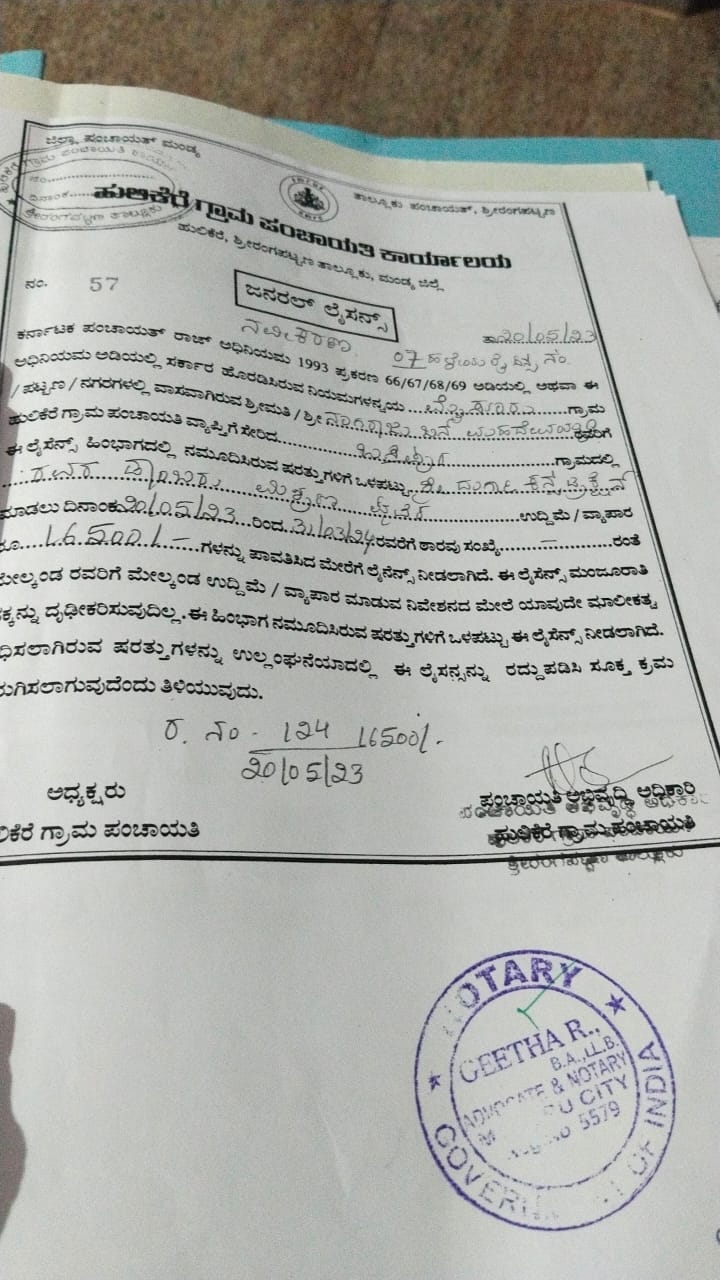 ಜಿಲ್ಲಾ ಪಂಚಾಯತ್ ಮಂಡ್ಯ
ತಾಲ್ಲೂಕು ಪಂಚಾಯತ್, ಶ್ರೀರಂಗಪಟ್ಟಣ
ದಿನಾಂಕ
ಶ್ರೀರಂಗಪಟ್ಟಣ ತಾಲ್ಲೂಕು
ಹುಲಿಕೆರೆ ಗ್ರಾಮ ಪಂಚಾಯತಿ ಕಾರ್ಯಾಲಯ
ಹುಲಿಕೆರೆ, ಶ್ರೀರಂಗಪಟ್ಟಣ ತಾಲ್ಲೂಕು, ಮಂಡ್ಯ ಜಿಲ್ಲೆ
ನಂ. 57
ಜನರಲ್ ಲೈಸನ್ಸ್
ನವೀಕರಣ ತಾ 20/05/23
ಕರ್ನಾಟಕ ಪಂಚಾಯತ್ ರಾಜ್ ಅಧಿನಿಯಮ 1993 ಪ್ರಕರಣ 66/67/68/69 ಅಡಿಯಲ್ಲಿ ಅಥವಾ ಈ
07
ಅಧಿನಿಯಮ ಅಡಿಯಲ್ಲಿ ಸರ್ಕಾರ ಹೊರಡಿಸಿರುವ ನಿಯಮಗಳನ್ವಯ ಗ್ರಾಮ
/ ಪಟ್ಟಣ / ನಗರಗಳಲ್ಲಿ ವಾಸವಾಗಿರುವ ಶ್ರೀಮತಿ / ಶ್ರೀ ರವರಿಗೆ
ಹುಲಿಕೆರೆ ಗ್ರಾಮ ಪಂಚಾಯತಿ ವ್ಯಾಪ್ತಿಗೆ ಸೇರಿದ ಗ್ರಾಮದಲ್ಲಿ
ಈ ಲೈಸೆನ್ಸ್ ಹಿಂಭಾಗದಲ್ಲಿ ನಮೂದಿಸಿರುವ ಷರತ್ತುಗಳಿಗೆ ಒಳಪಟ್ಟು ಶ್ರೀ
ಮಿಶ್ರಣ ಉದ್ದಿಮೆ / ವ್ಯಾಪಾರ
ಮಾಡಲು ದಿನಾಂಕ 20/05/23 ರಿಂದ 31/03/24 ರವರೆಗೆ ಠಾರವು ಸಂಖ್ಯೆ - ರಂತೆ
ರೂ 16500/- ಗಳನ್ನು ಪಾವತಿಸಿದ ಮೇರೆಗೆ ಲೈಸೆನ್ಸ್ ನೀಡಲಾಗಿದೆ. ಈ ಲೈಸೆನ್ಸ್ ಮಂಜೂರಾತಿ
ಮೇಲ್ಕಂಡ ರವರಿಗೆ ಮೇಲ್ಕಂಡ ಉದ್ದಿಮೆ / ವ್ಯಾಪಾರ ಮಾಡುವ ನಿವೇಶನದ ಮೇಲೆ ಯಾವುದೇ ಮಾಲೀಕತ್ವ
ಕ್ಕನ್ನು ದೃಢೀಕರಿಸುವುದಿಲ್ಲ. ಈ ಹಿಂಭಾಗ ನಮೂದಿಸಿರುವ ಷರತ್ತುಗಳಿಗೆ ಒಳಪಟ್ಟು ಈ ಲೈಸೆನ್ಸ್ ನೀಡಲಾಗಿದೆ.
ಧಿಸಲಾಗಿರುವ ಷರತ್ತುಗಳನ್ನು ಉಲ್ಲಂಘನೆಯಾದಲ್ಲಿ ಈ ಲೈಸನ್ಸನ್ನು ರದ್ದುಪಡಿಸಿ ಸೂಕ್ತ ಕ್ರಮ
ರುಗಿಸಲಾಗುವುದೆಂದು ತಿಳಿಯುವುದು.
ರ. ನಂ - 124 16500/-
20/05/23
ಅಧ್ಯಕ್ಷರು
ಲಿಕೆರೆ ಗ್ರಾಮ ಪಂಚಾಯತಿ
ಪಂಚಾಯತಿ ಅಭಿವೃದ್ಧಿ ಅಧಿಕಾರಿ
ಹುಲಿಕೆರೆ ಗ್ರಾಮ ಪಂಚಾಯತಿ
NOTARY
GEETHA R.,
B.A., LL.B.
ADVOCATE & NOTARY
CITY
5579
GOVERNMENT OF INDIA